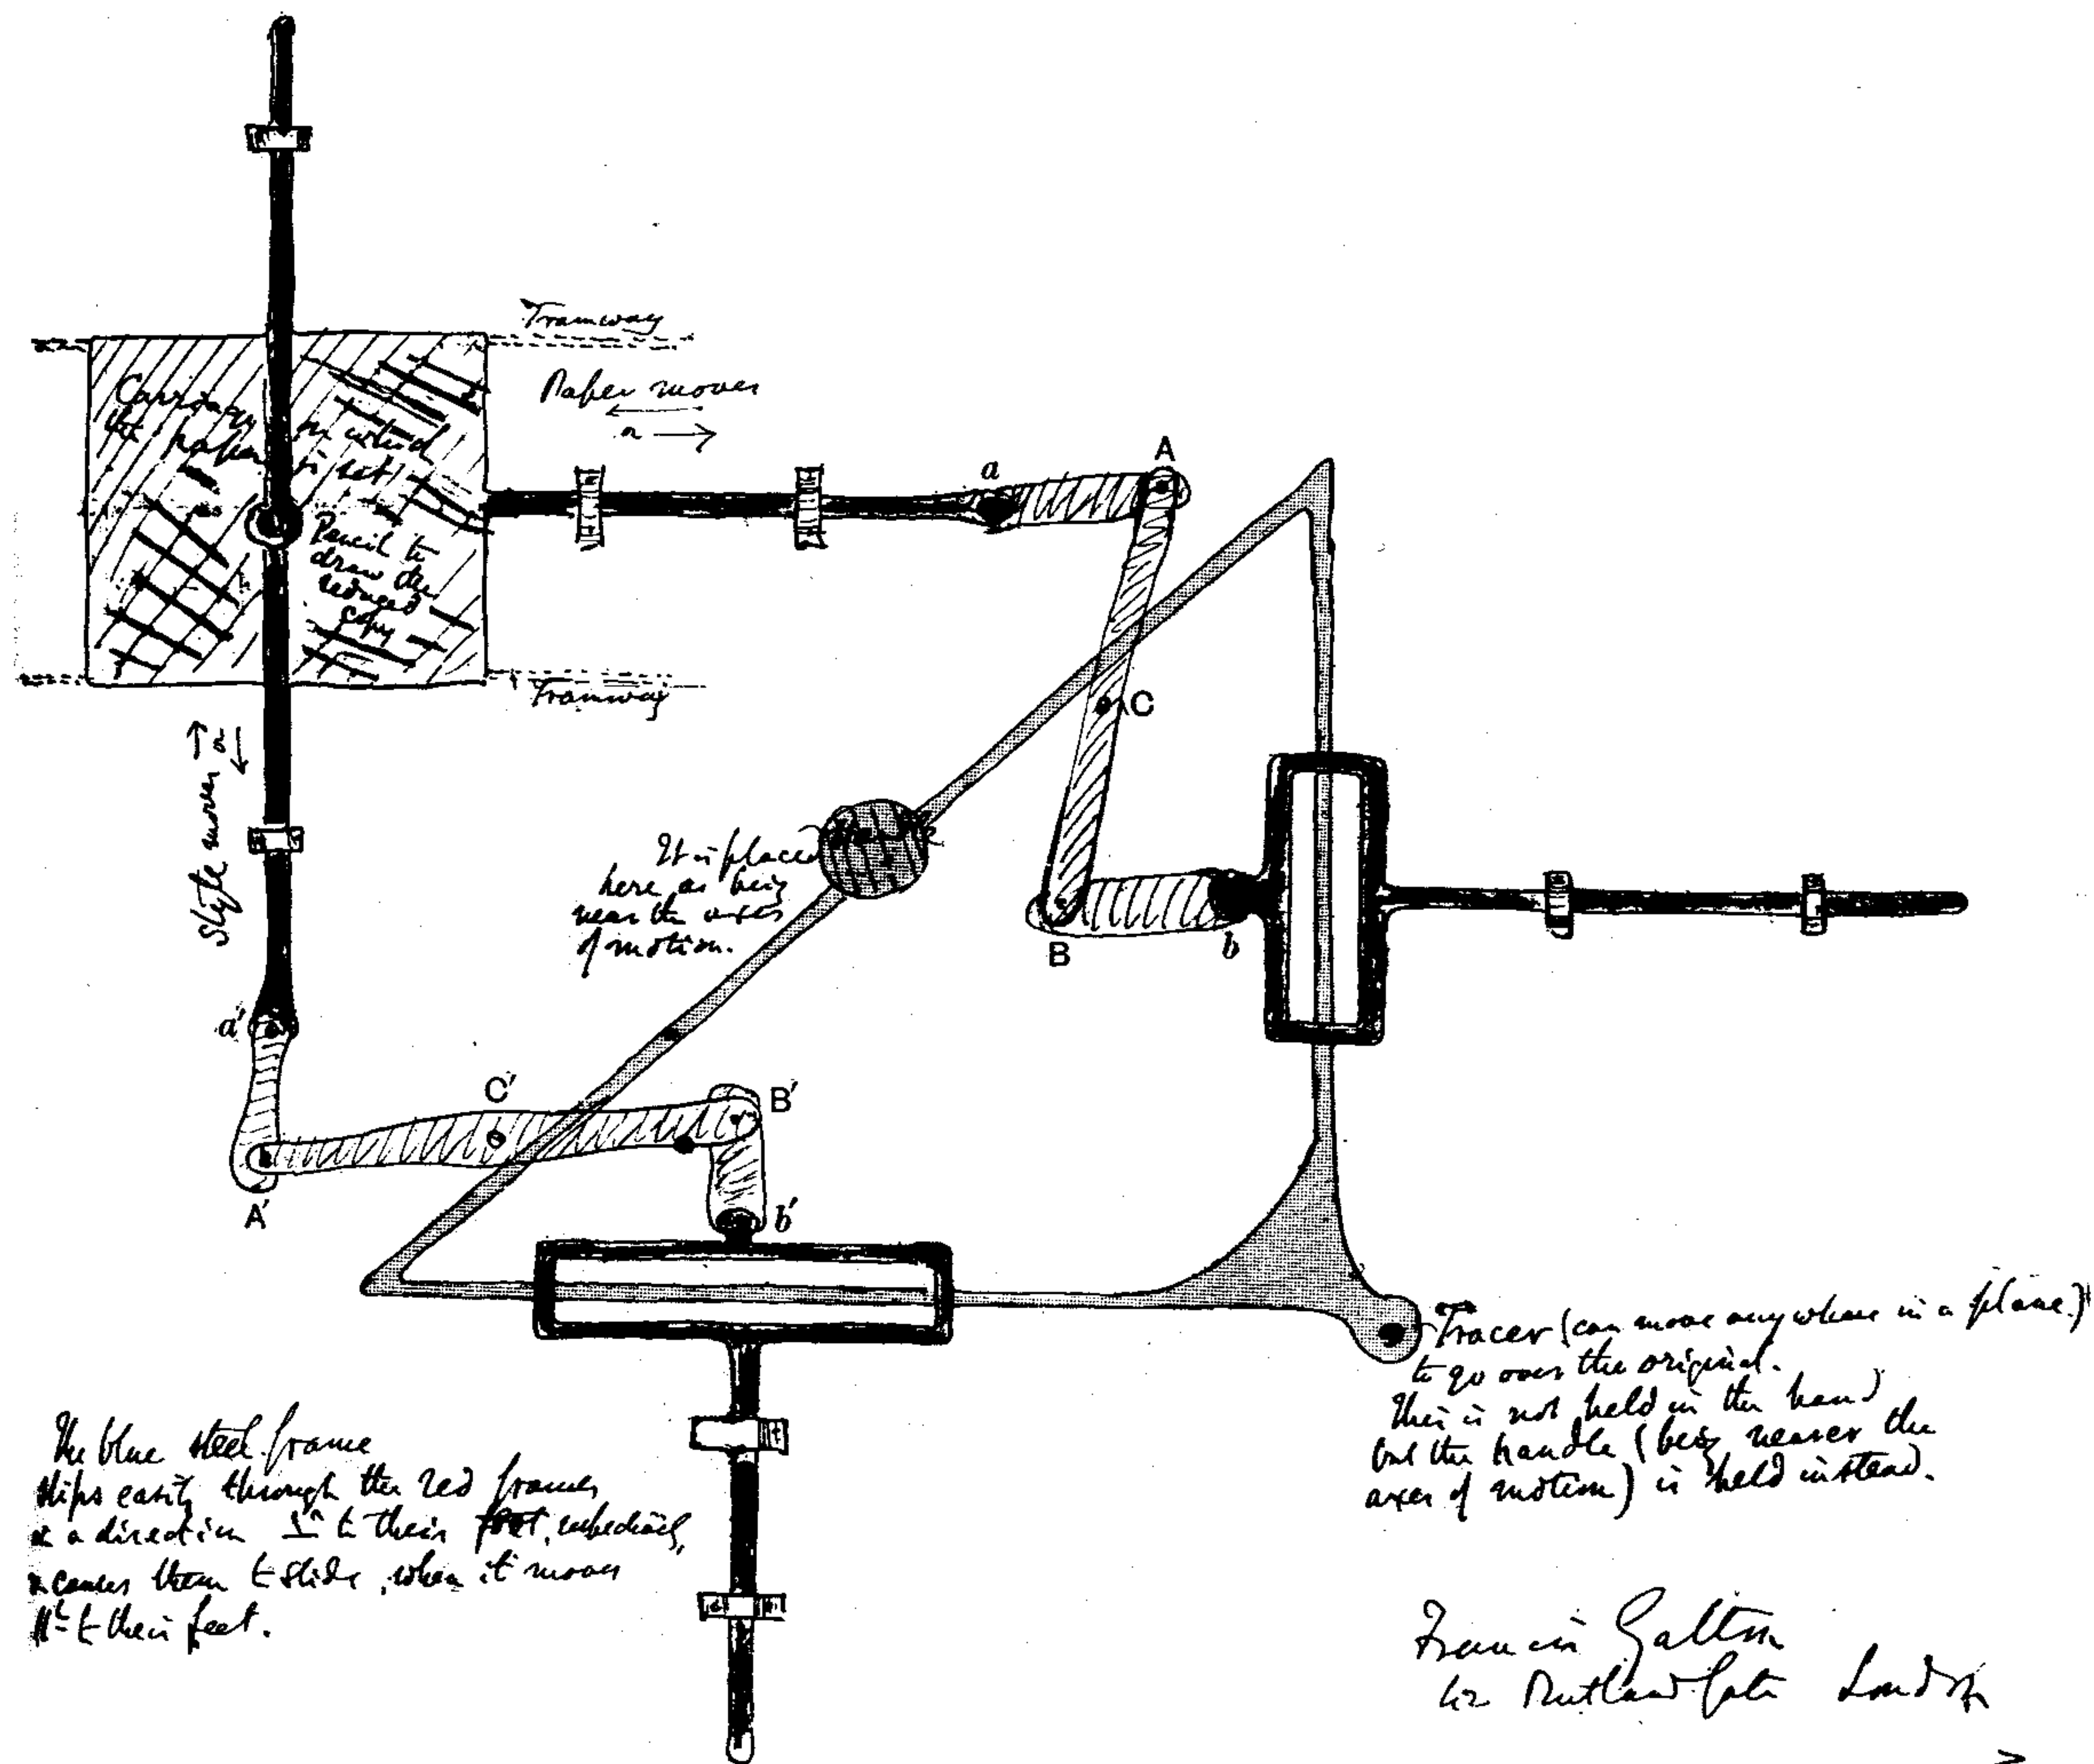 Tramway
Paper moves
or
Carriage on which
the paper is set
Pencil to
draw the
reduced
copy
Tramway
Style moves or
a
A
C
B
b
It is placed
here as being
near the axes
of motion.
a'
C'
B'
A'
b'
Tracer (can move anywhere in a plane)
to go over the original.
This is not held in the hand
but the handle (being nearer the
axes of motion) is held instead.
The blue steel frame
slips easily through the red frames
in a direction to their feet, respectively,
& causes them to slide, when it moves
to their feet.
Francis Galton
42 Rutland Gate London